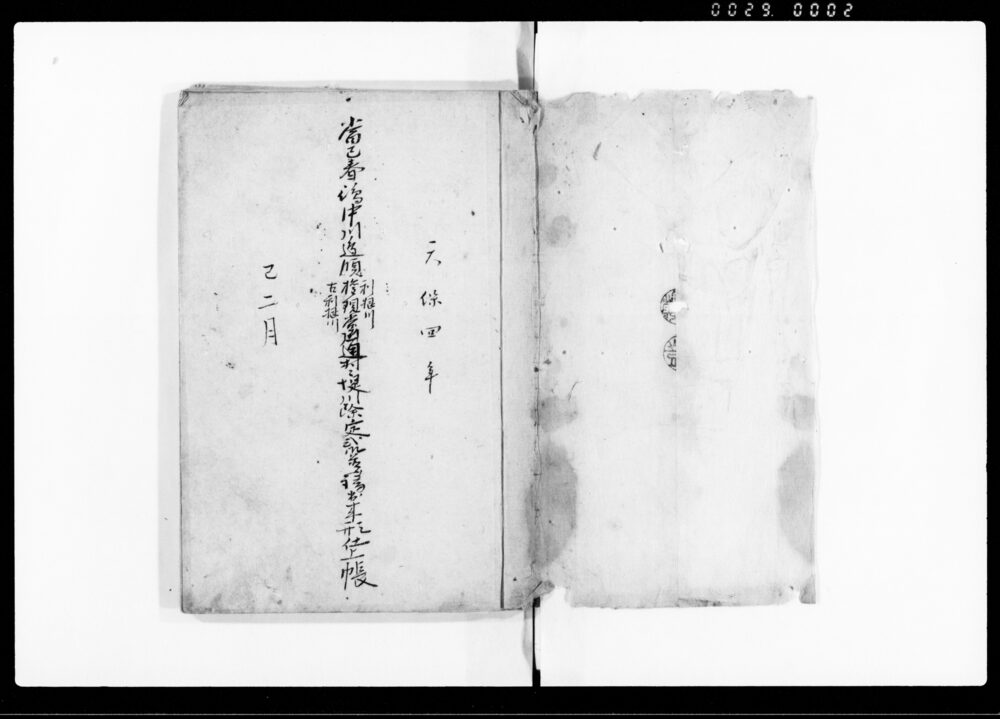 0029. 0002
天保四年
當巳春
中川通
利根川
古利根川
権現堂
川除定式御普請出来形仕上帳
巳二月